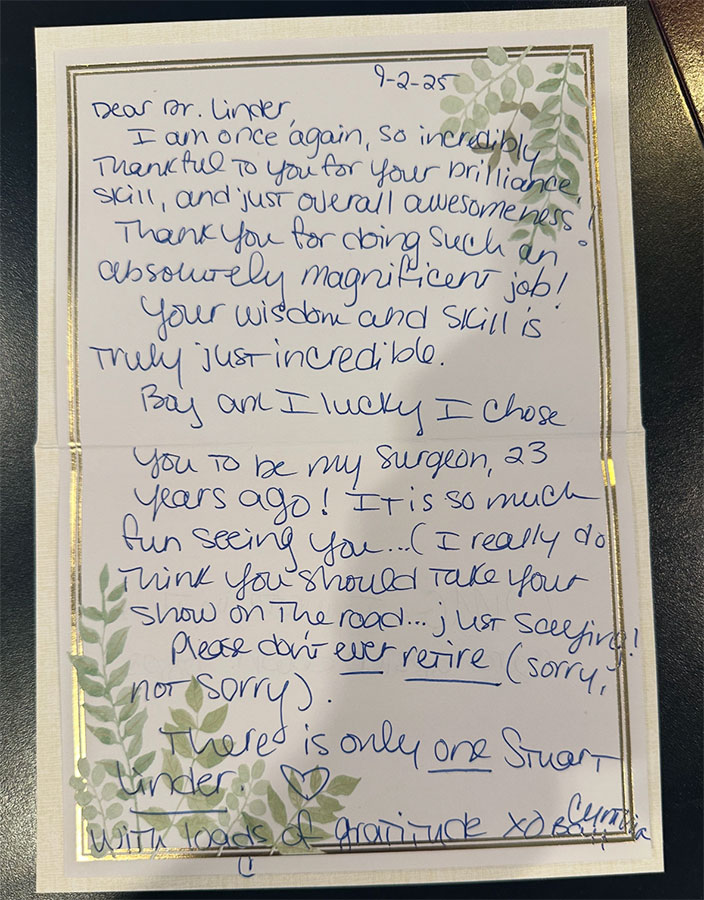 9-2-25
Dear Dr. Linder,
I am once again, so incredibly
Thankful to you for your brilliance,
skill, and just overall awesomeness!
Thank you for doing such an
absolutely magnificent job!
Your wisdom and skill is
Truly just incredible.
Boy am I lucky I chose
you to be my surgeon, 23
years ago! It is so much
fun seeing you...(I really do
Think you should take your
show on the road... just saying!
Please don't ever retire (sorry,
not sorry).
There is only one Stuart
Linder. ♡
with loads of gratitude xo
Cynthia